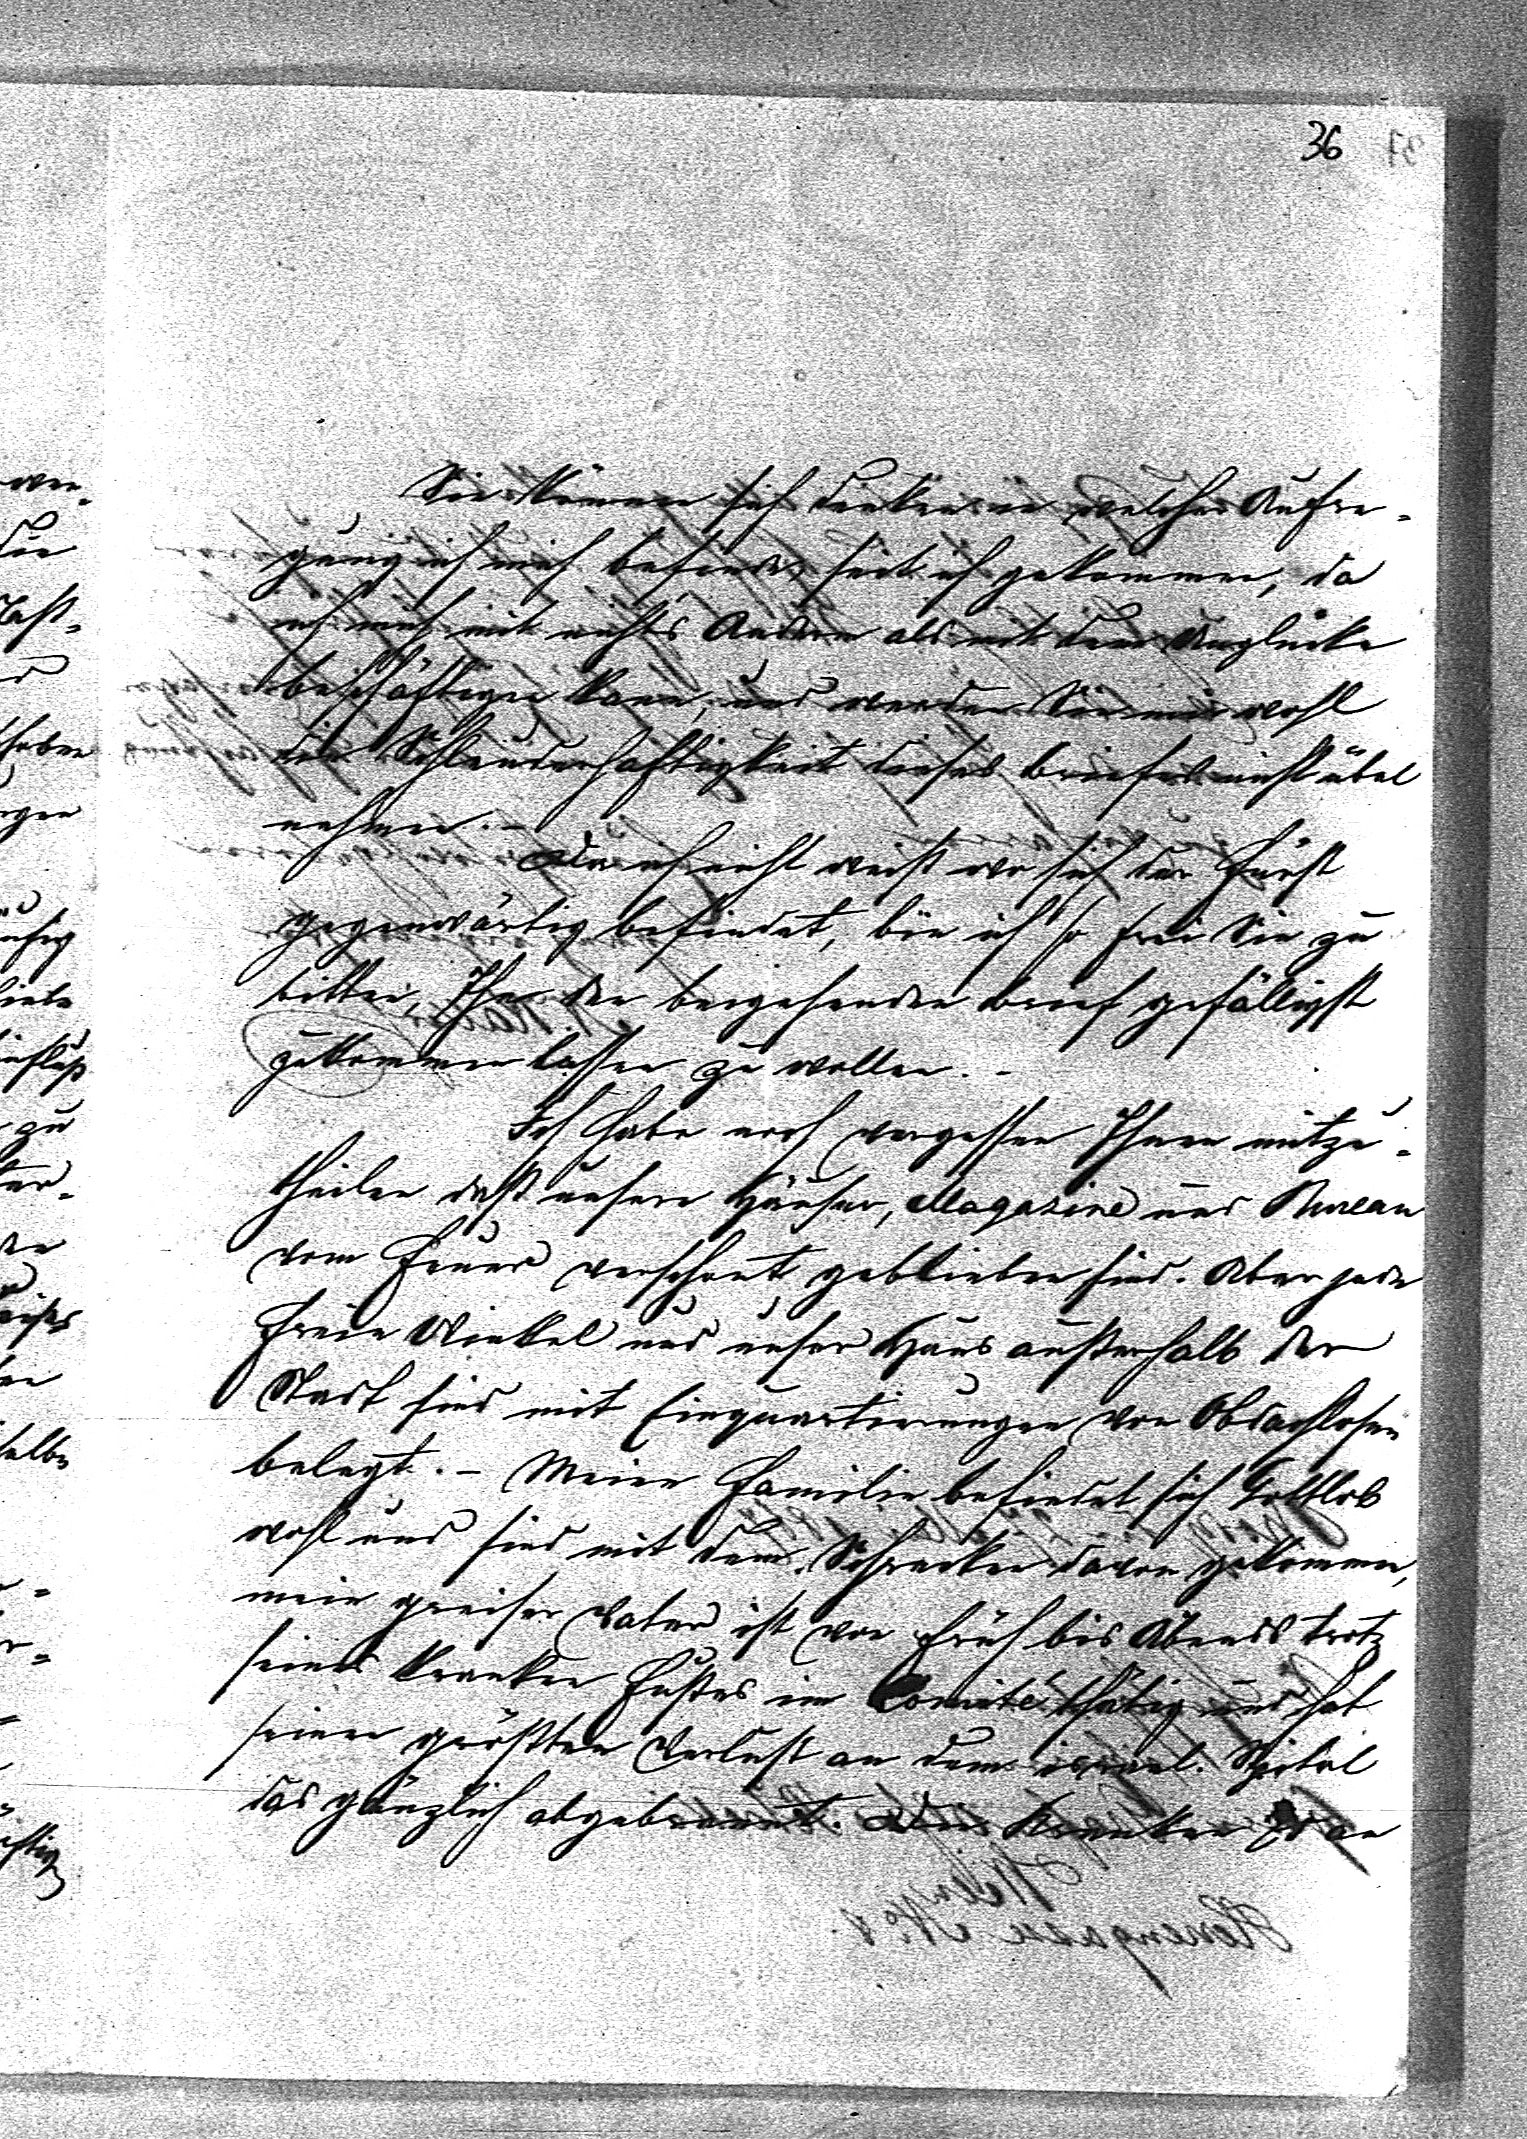 36
Sie können sich denken in welcher Aufre-
gung ich mich befinde, seit ich gekommen, da
ich mich mit nichts Andern als mit dem Unglücke
beschäftigen kann, und werden Sie mir wohl
die Schleuderhaftigkeit dieses Briefes nicht übel
nehmen. –
Da ich nicht weiß wo sich der Fürst
gegenwärtig befindet, bin ich so frei Sie zu
bitten, Ihm den beigehenden Brief gefälligst
zukommen lassen zu wollen. –
Ich habe noch vergessen Ihnen mitzu-
theilen daß unsere Häuser, Magazine und Bureau
vom Feuer verschont geblieben sind. Aber jede
freie Winkel und unser Haus außerhalb der
Stadt sind mit Einquartierungen von Obdachlosen
belegt. – Meine Familie befindet sich Gottlob
wohl und sind mit dem Schrecken davon gekommen,
mein greiser Vater ist von früh bis Abends trotz
seines kranken Fußes im Comité thätig und hat
seinen größten Verlust an dem israel. Spital
das gänzlich abgebrannt. Die Kranken an